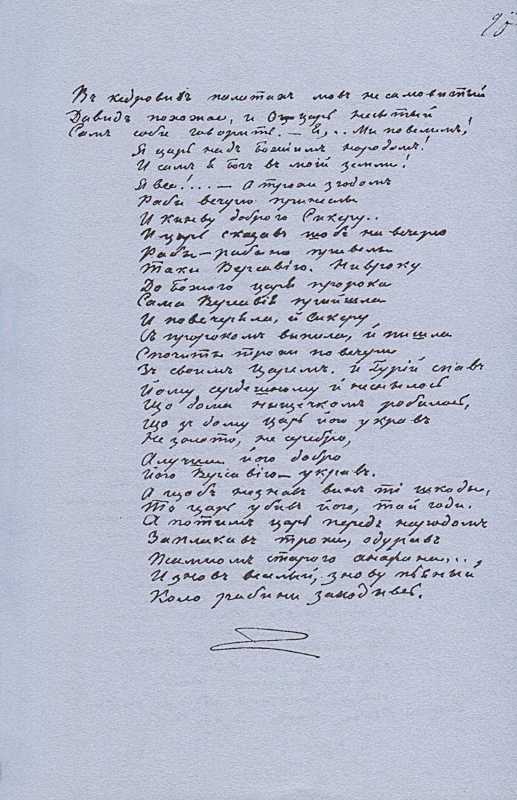 95
Въ кедровихъ палатахъ мовъ несамовитый
Давидъ похожае, и О царь неситый
Самъ соби говорить. — Я, .. Мы повелим!
Я царь надъ божіимъ народомъ!
И самъ я Богъ въ моій земли!
Я все! ... — А трохи згодомъ
Раби вечерю принесли
И киеву доброго Сикеру..
И царь сказавъ щобъ на вечерю
Раби — рабыню привели
Таки Вирсавію. Невроку
До Божого царя пророка
Сама Вирсавія прийшла
И повечеряла, й Сикеру
Съ пророкомъ випила, й пишла
Спочити трохи по вечери
Зъ своимъ Царемъ. й Гурій спавъ
Йому сердешному й неснилось
Що дома нищечкомъ робилось,
Що зъ дому царь його укравъ
Не золото, не серебро,
А лучше його добро
Його Вирсавію — укравъ.
А щобъ незнавъ винъ ті шкоды,
То царь убивъ його, тай годи.
А потимъ царь передъ народомъ
Заплакавъ трохи, одуривъ
Псалмомъ старого анафана...,
И знову веселый, знову пьяный,
Коло рабини заходивсь.